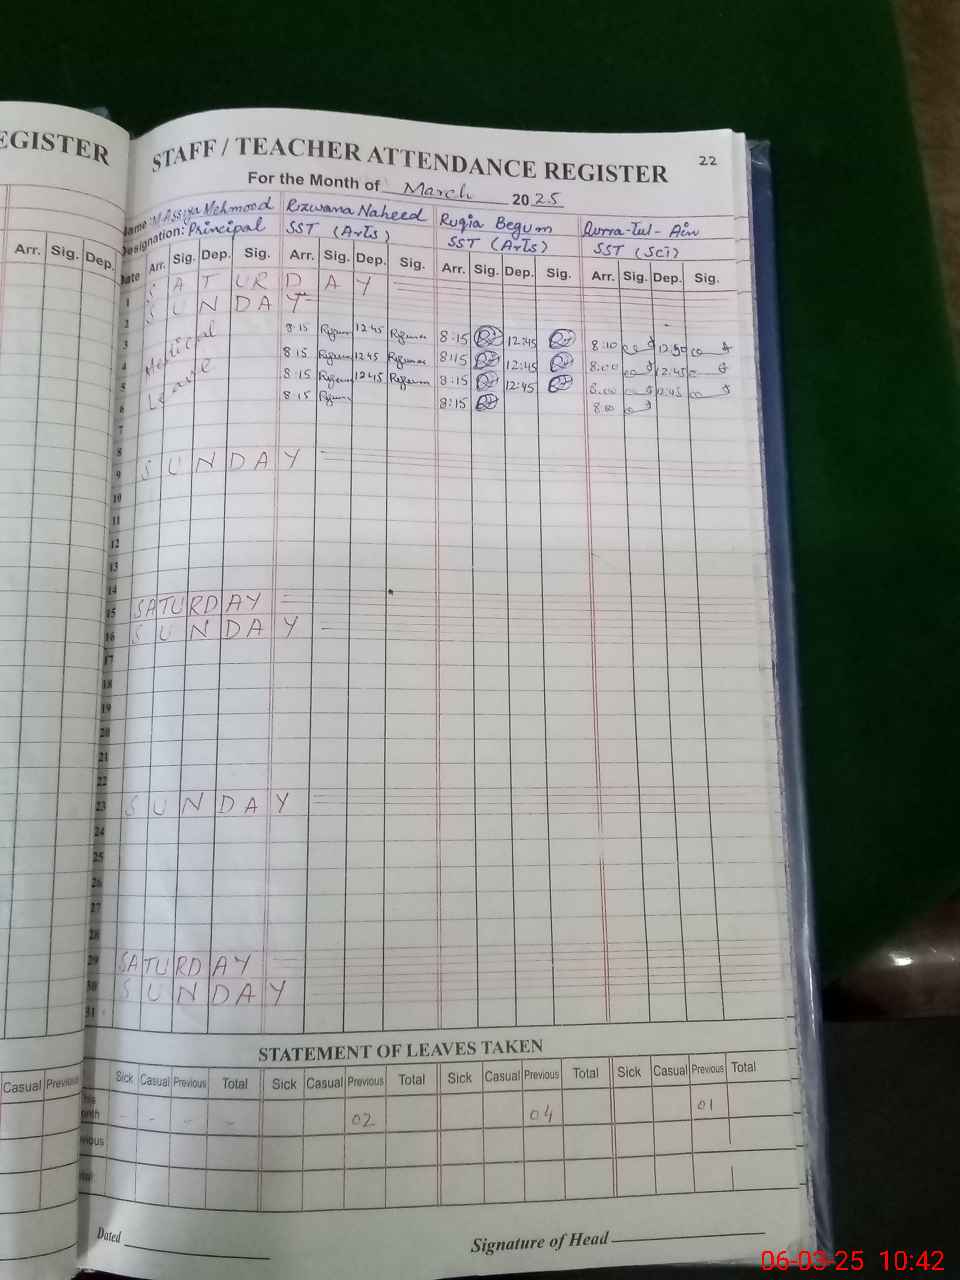 EGISTER
Arr. Sig. Dep.
Casual Previous
22
STAFF / TEACHER ATTENDANCE REGISTER
For the Month of March 2025
Name: M. Assiya Mehmood Rizwana Naheed Ruqia Begum Qurra-tul-Ain
Designation: Principal SST (Arts) SST (Arts) SST (Sci)
Date Arr. Sig. Dep. Sig. Arr. Sig. Dep. Sig. Arr. Sig. Dep. Sig. Arr. Sig. Dep. Sig.
1 SATURDAY
2 SUNDAY
3 Medical 8:15 12:45 8:15 12:45 8:10 12:50
4 8:15 12:45 8:15 12:45 8:00 12:45
5 Leave 8:15 12:45 8:15 12:45 8:00 12:45
6 8:15 8:15 8:00
7
8
9 SUNDAY
10
11
12
13
14
15 SATURDAY
16 SUNDAY
17
18
19
20
21
22
23 SUNDAY
24
25
26
27
28
29 SATURDAY
30 SUNDAY
31
STATEMENT OF LEAVES TAKEN
Sick Casual Previous Total Sick Casual Previous Total Sick Casual Previous Total Sick Casual Previous Total
This month - - - - 02 04 01
Dated
Signature of Head
06-03-25 10:42